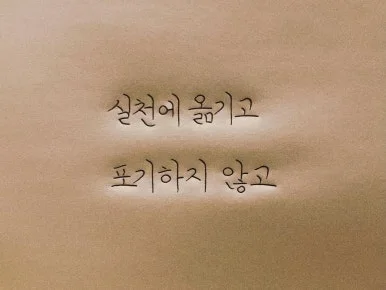 실천에 옮기고
포기하지 않고